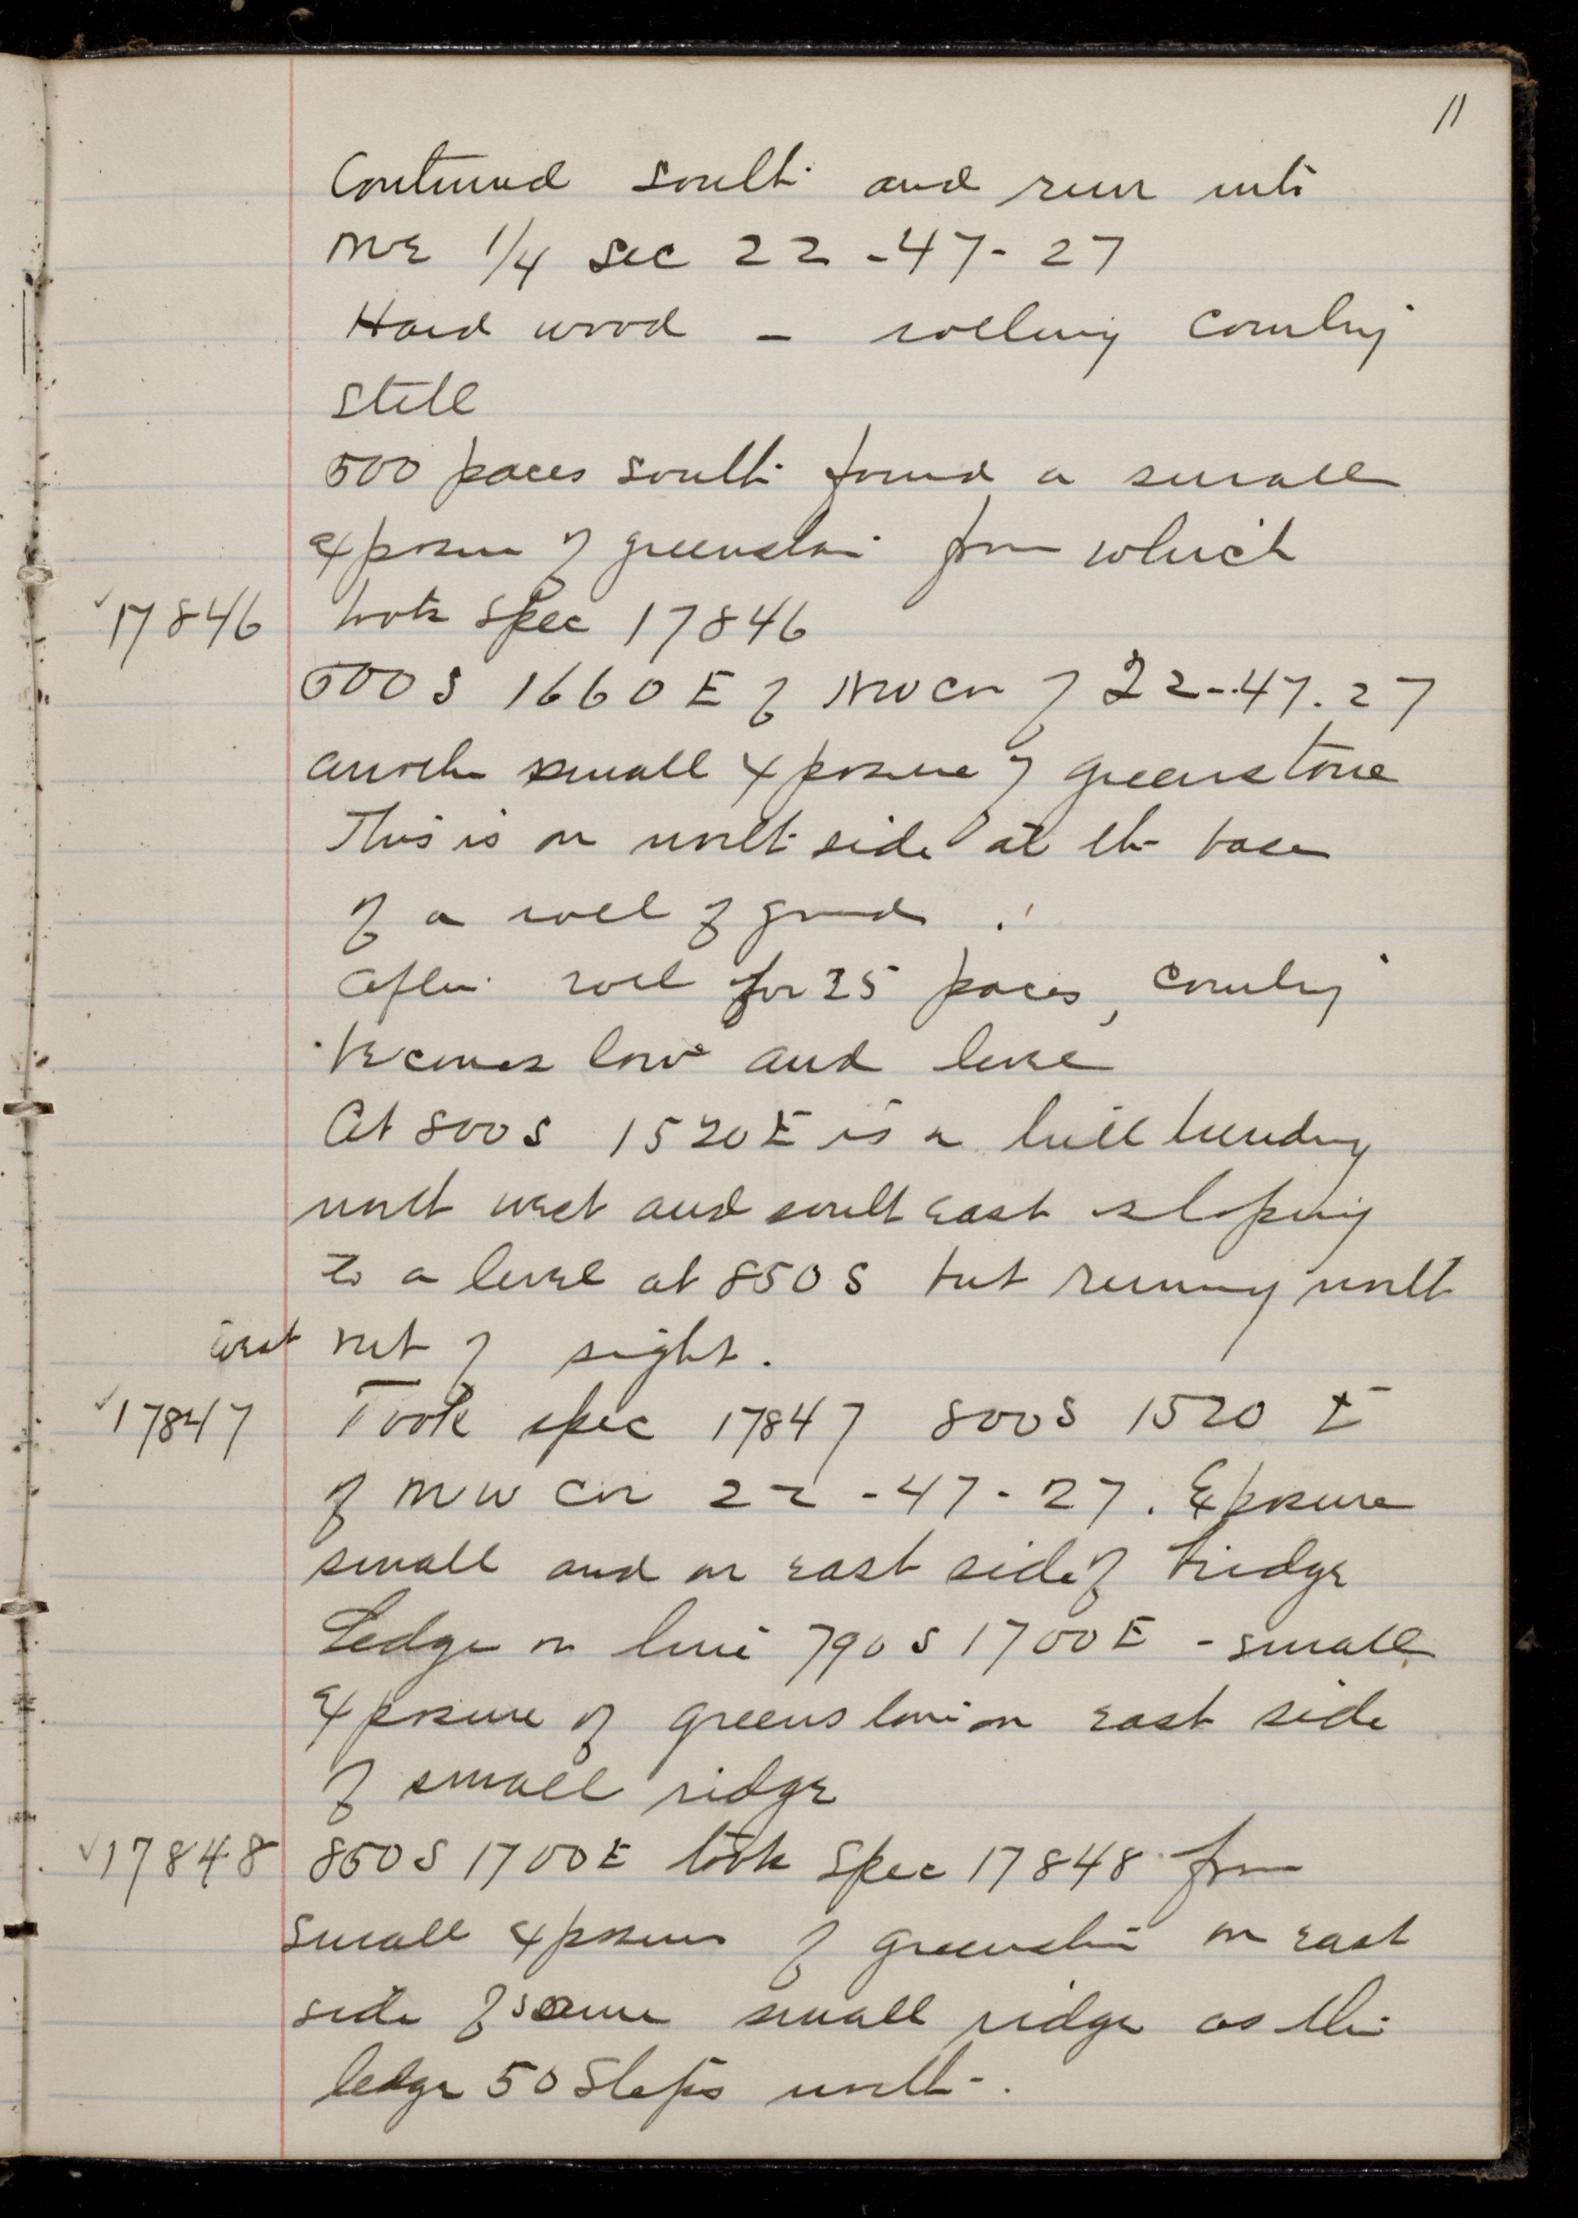 11
Continued south and run into
NE 1/4 sec 22 - 47 - 27
Hard wood - rolling country
still
500 paces south found a small
exposure of greenstone from which
✓17846 took spec 17846
500 S 1660 E of NW cor of 22 - 47. 27
another small exposure of greenstone
This is on north side at the base
of a roll of ground .
After roll for 25 paces, country
becomes low and level
At 800 S 1520 E is a hill trending
north west and south east sloping
to a level at 850 S but running north
west out of sight.
✓17847 Took spec 17847 800 S 1520 E
of NW cor 22 - 47 - 27. Exposure
small and on east side of bridge
Ledge on line 790 S 1700 E - small
exposure of greenstone on east side
of small ridge
✓17848 850 S 1700 E took spec 17848 from
small exposure of greenstone on east
side of same small ridge as the
ledge 50 steps north .